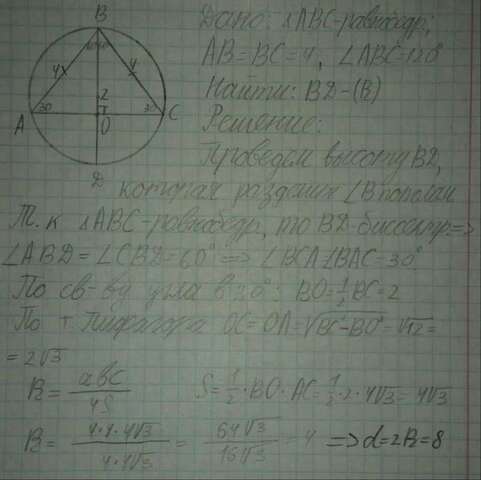 B
Дано: △ABC-равнобедр,
AB=BC=4, ∠ABC=120°
Найти: BD-(B)
Решение:
Проведем высоту BD,
которая разделит ∠B пополам
4 4
60 60
2
30 30
A O C
D
Т.к △ABC-равнобедр, то BD-биссектр=>
∠ABD=∠CBD=60°=>∠BCA∠BAC=30°
По св-ву угла в 30°: BO=½BC=2
По т Пифагора OC=OA=√BC²-BO²=√12=
=2√3
R=abc/4S S=1/2·BO·AC=1/2·2·4√3=4√3
R=4·4·4√3/4·4√3=64√3/16√3=4 =>d=2R=8